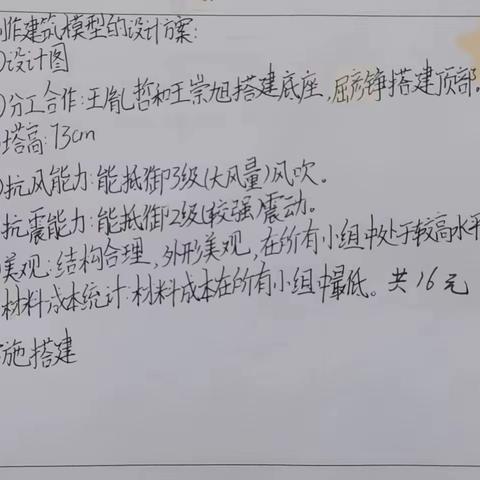 作建筑模型的设计方案:
)设计图
)分工合作:王胤哲和王崇旭搭建底座,屈彦铮搭建顶部。
塔高:73cm
)抗风能力:能抵御3级(大风量)风吹。
抗震能力:能抵御2级(较强)震动。
美观:结构合理,外形美观,在所有小组中处于较高水平
材料成本统计:材料成本在所有小组中最低。共16元
施搭建